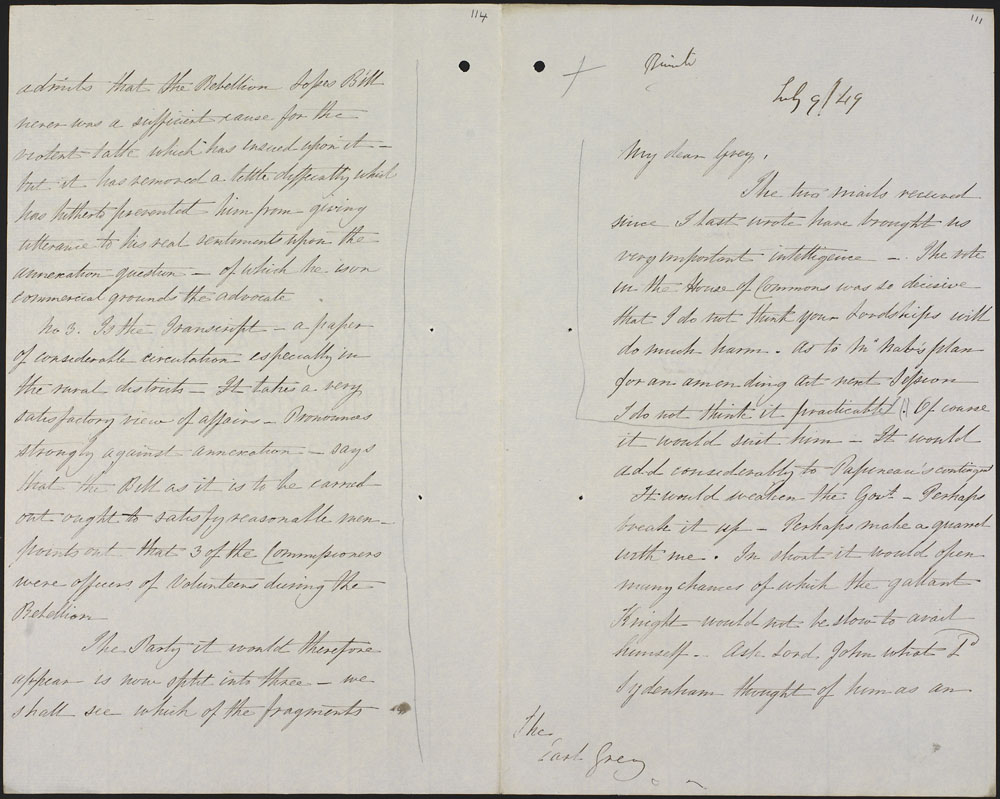 114
admits that the Rebellion Losses Bill
never was a sufficient cause for the
violent talk which has ensued upon it –
but it has removed a little difficulty which
has hitherto prevented him from giving
utterance to his real sentiments upon the
annexation question – of which he is on
commercial grounds the advocate
No 3. Is the Transcript – a paper
of considerable circulation especially in
the rural districts – It takes a very
satisfactory view of affairs – Pronounces
strongly against annexation – says
that the Bill as it is to be carried
out ought to satisfy reasonable men –
points out that 3 of the Commissioners
were officers of Volunteers during the
Rebellion
The Party it would therefore
appear is now split into three – we
shall see which of the fragments
111
Private
July 9/49
My dear Grey,
The two mails received
since I last wrote have brought us
very important intelligence –. The vote
in the House of Commons was so decisive
that I do not think your Lordships will
do much harm. As to McNab's plan
for an amending Act next Session
I do not think it practicable (.) Of course
it would suit him – It would
add considerably to Papineau's contingent
It would weaken the Govt – Perhaps
break it up – Perhaps make a quarrel
with me. In short it would open
many chances of which the gallant
Knight would not be slow to avail
himself. Ask Lord John what Ld
Sydenham thought of him as an
The
Earl Grey